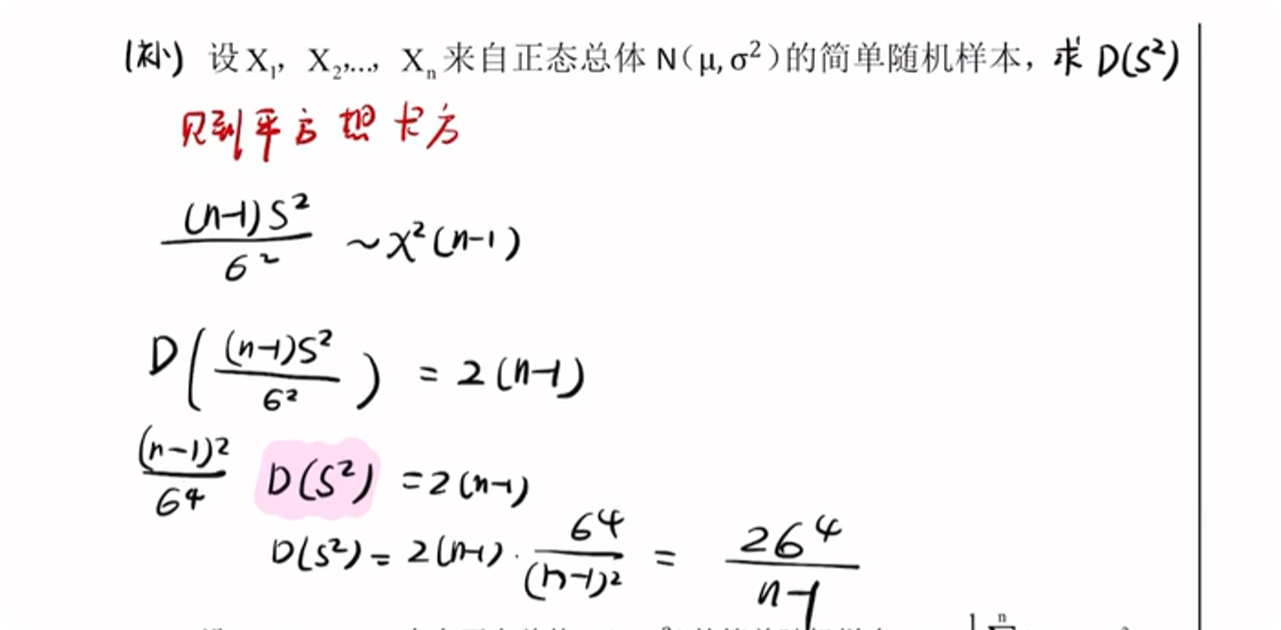 (补) 设 X₁, X₂,..., Xₙ 来自正态总体 N(μ, σ²)的简单随机样本, 求 D(S²)
见到平方想卡方
(n-1)S²/σ² ~ χ²(n-1)
D((n-1)S²/σ²) = 2(n-1)
(n-1)²/σ⁴ D(S²) = 2(n-1)
D(S²) = 2(n-1) · σ⁴/(n-1)² = 2σ⁴/(n-1)